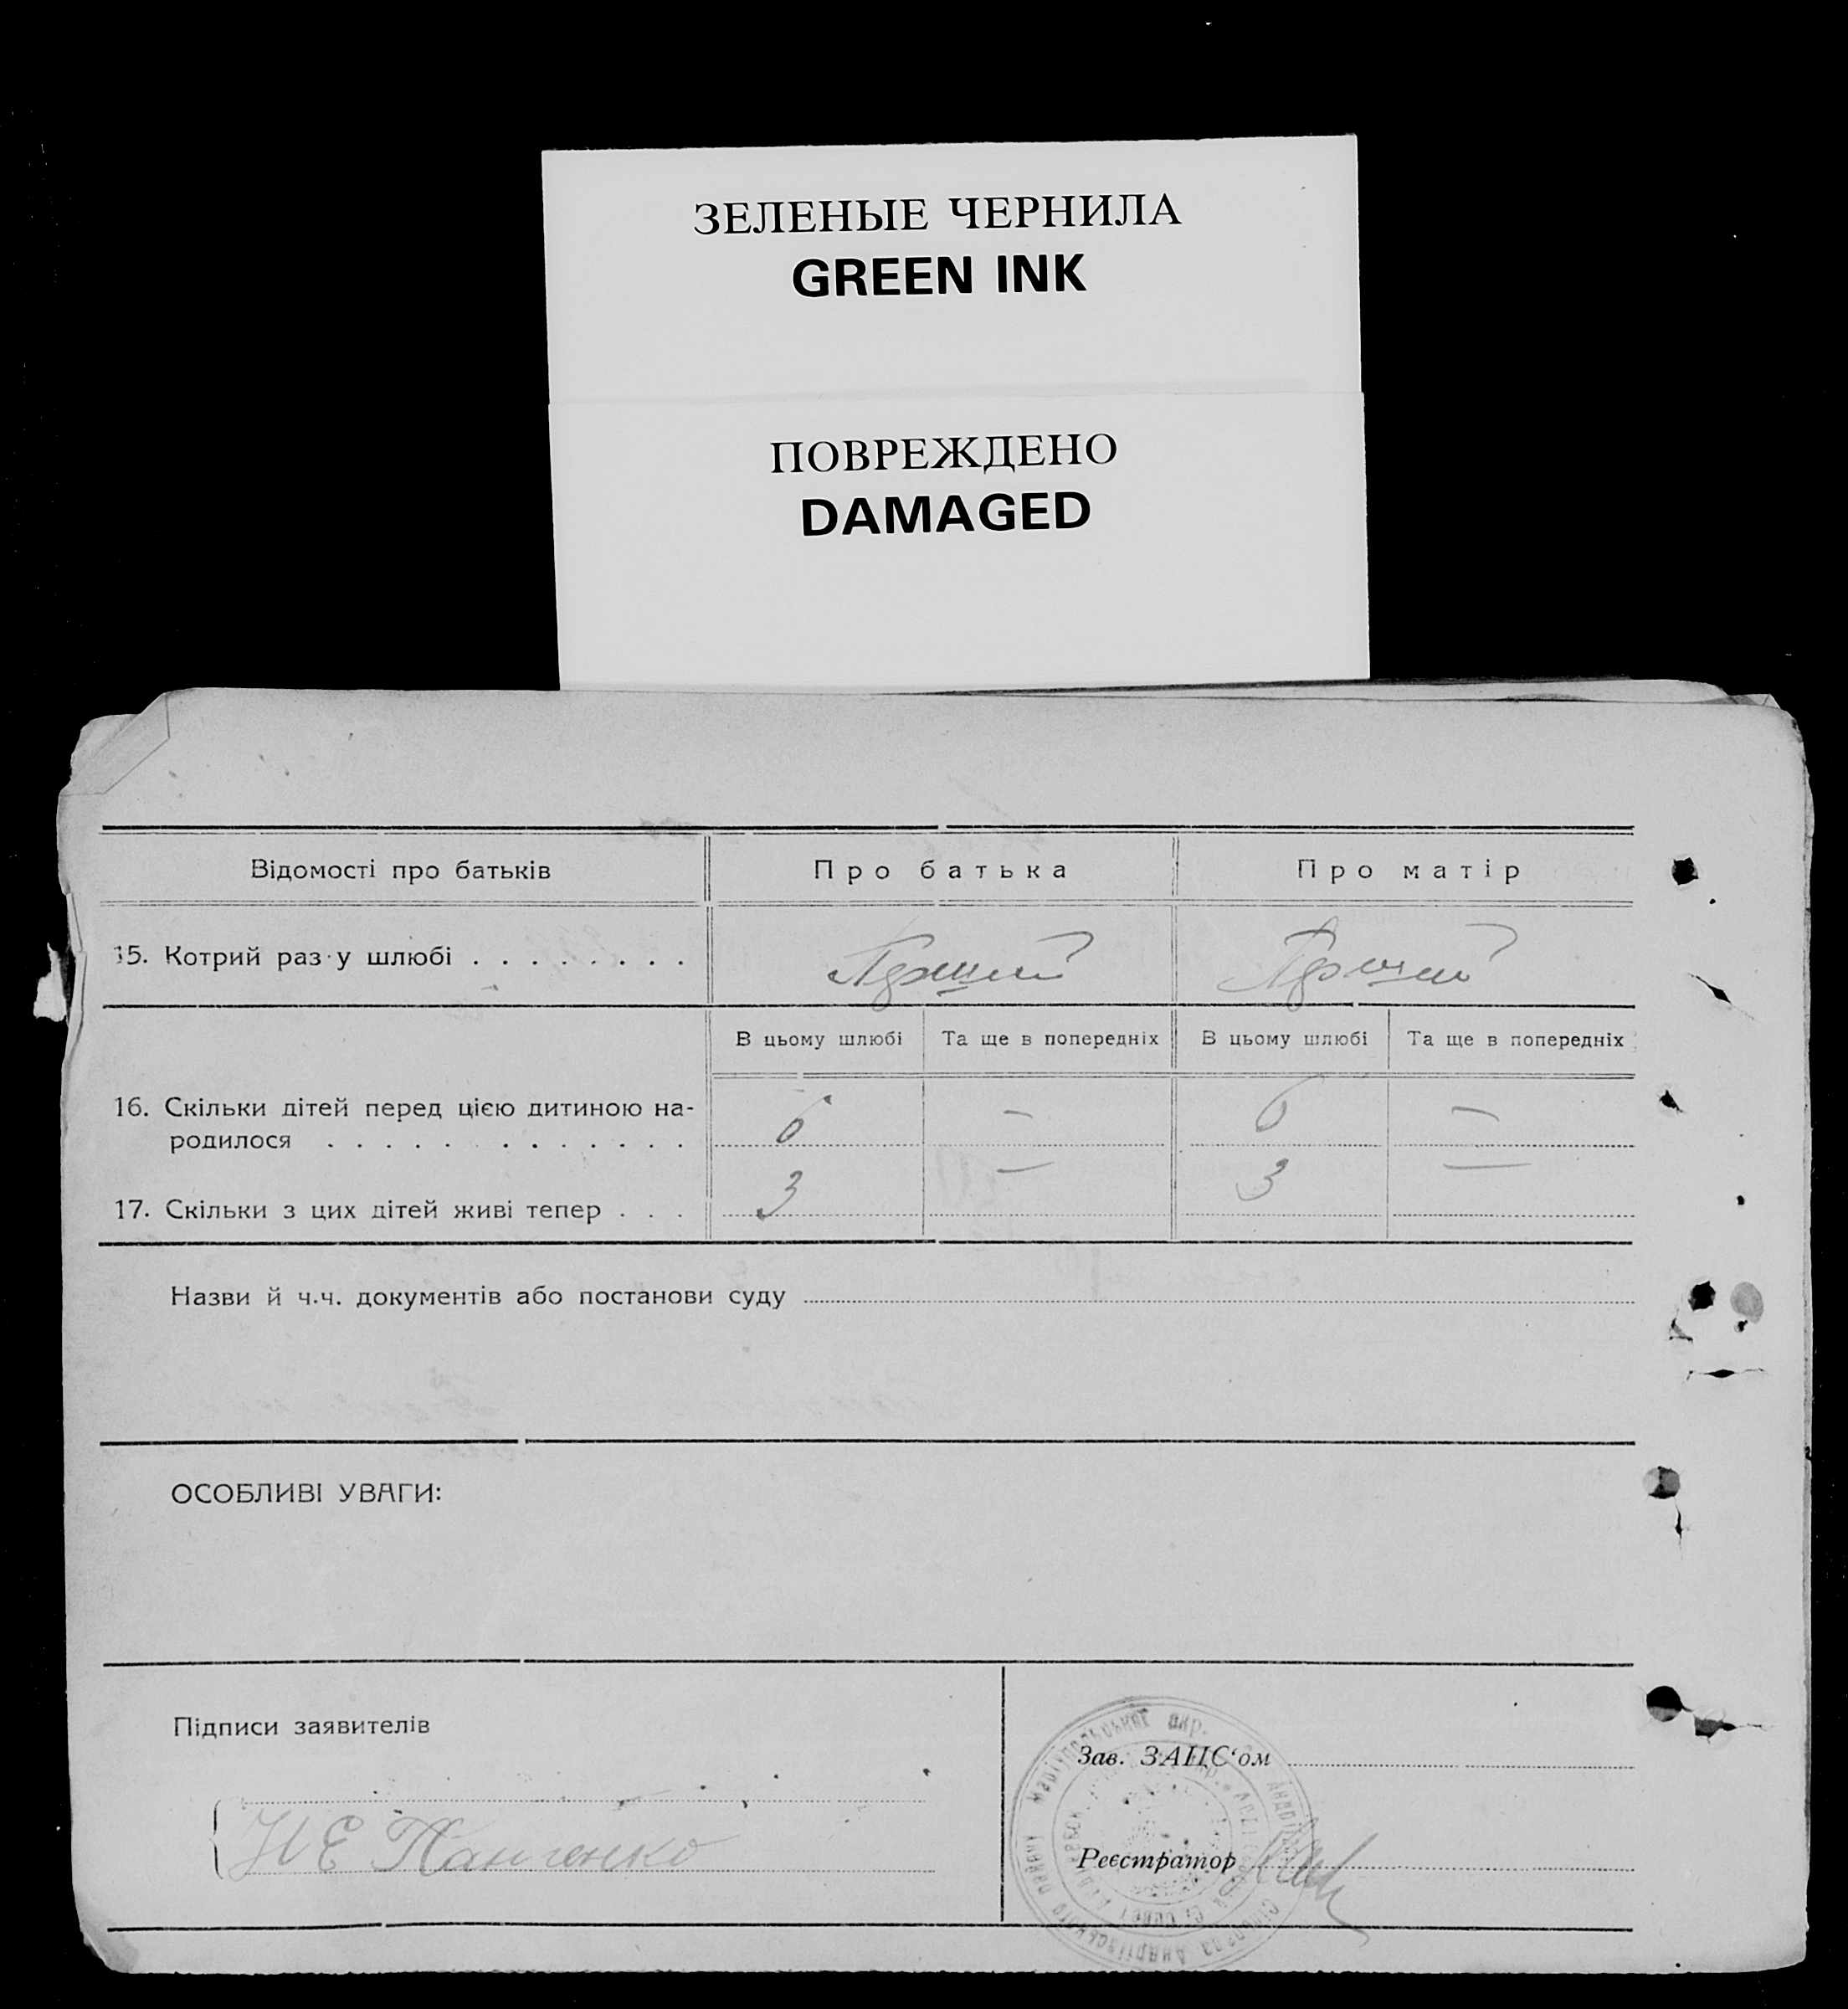 ЗЕЛЕНЫЕ ЧЕРНИЛА
GREEN INK
ПОВРЕЖДЕНО
DAMAGED
Відомості про батьків Про батька Про матір
15. Котрий раз у шлюбі . . . . . . . . Перший Перший
В цьому шлюбі Та ще в попередніх В цьому шлюбі Та ще в попередніх
16. Скільки дітей перед цією дитиною на-
родилося . . . . . . . . . . . . . 6 — 6 —
17. Скільки з цих дітей живі тепер . . . 3 — 3 —
Назви й ч.ч. документів або постанови суду
ОСОБЛИВІ УВАГИ:
Підписи заявителів
Зав. ЗАЦС‘ом
Панченко
Реєстратор
Маріупольської окр. Андріївська Сільрада Андріївського району